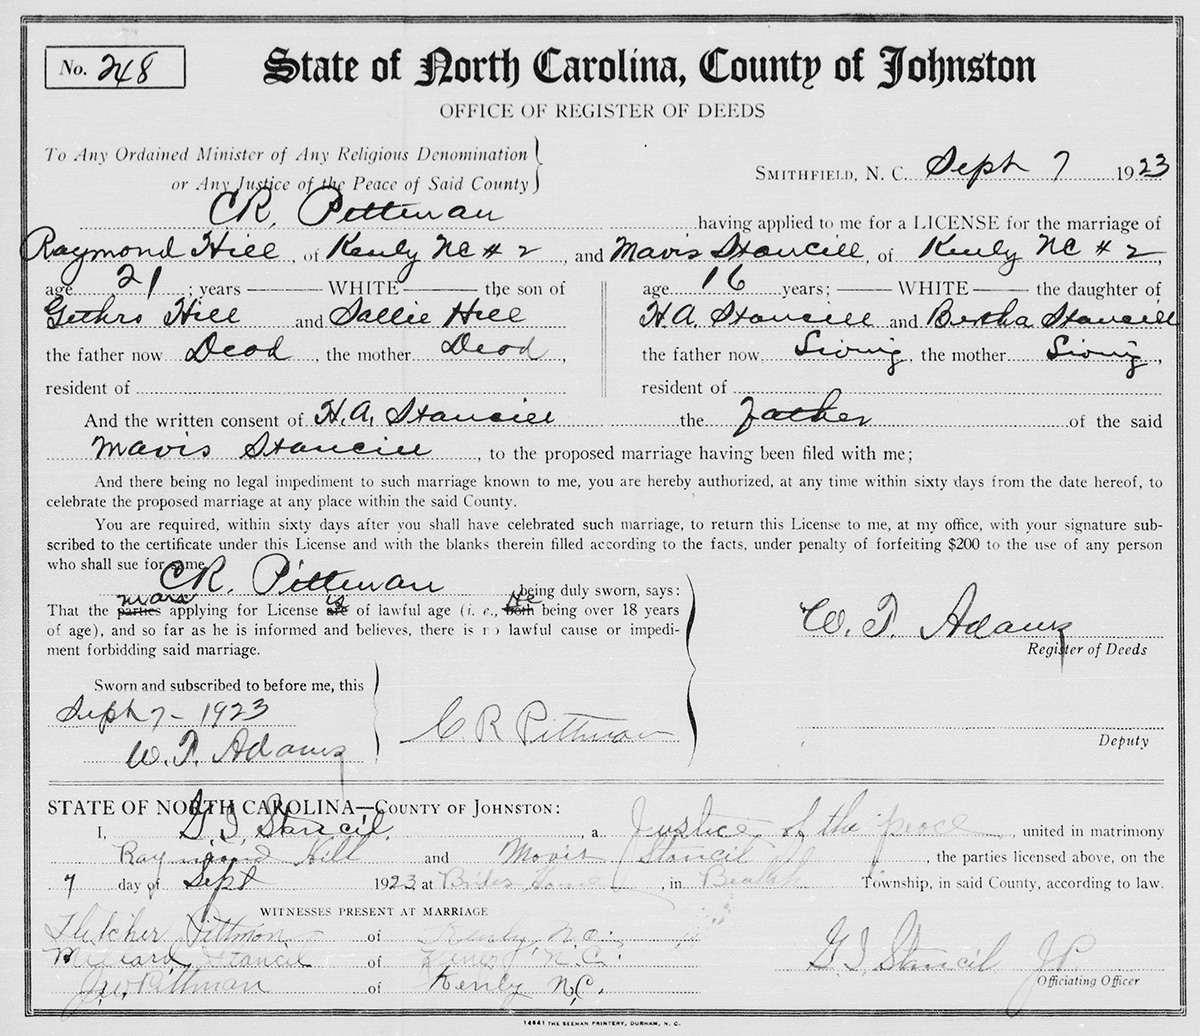 No. 248
State of North Carolina, County of Johnston
OFFICE OF REGISTER OF DEEDS
To Any Ordained Minister of Any Religious Denomination
or Any Justice of the Peace of Said County
SMITHFIELD, N. C. Sept 7 1923
C R. Pittman having applied to me for a LICENSE for the marriage of
Raymond Hill, of Kenly NC # 2, and Mavis Stancill, of Kenly NC # 2,
age 21; years WHITE the son of
Gethro Hill and Sallie Hill
the father now Dead, the mother Dead,
resident of
age 16 years; WHITE the daughter of
H.A. Stancill and Bertha Stancill
the father now Living, the mother Living,
resident of
And the written consent of H.A. Stancill the father of the said
Mavis Stancill, to the proposed marriage having been filed with me;
And there being no legal impediment to such marriage known to me, you are hereby authorized, at any time within sixty days from the date hereof, to
celebrate the proposed marriage at any place within the said County.
You are required, within sixty days after you shall have celebrated such marriage, to return this License to me, at my office, with your signature sub-
scribed to the certificate under this License and with the blanks therein filled according to the facts, under penalty of forfeiting $200 to the use of any person
who shall sue for same.
C R. Pittman being duly sworn, says:
man is he
That the parties applying for License are of lawful age (i. e., both being over 18 years
of age), and so far as he is informed and believes, there is no lawful cause or impedi-
ment forbidding said marriage.
W. T. Adams
Register of Deeds
Sworn and subscribed to before me, this
Sept 7 - 1923
W. T. Adams
C. R. Pittman
Deputy
STATE OF NORTH CAROLINA—COUNTY OF JOHNSTON:
I, G. I. Stancil, a Justice of the peace, united in matrimony
Raymond Hill and Mavis Stancil, the parties licensed above, on the
7 day of Sept 1923, at Brides Home, in Township, in said County, according to law.
WITNESSES PRESENT AT MARRIAGE
Fletcher Pittman of Kenly, N.C.
Millard Stancil of Kenly N.C.
J.W Pittman of Kenly N.C.
G I Stancil J P
Officiating Officer
14641 THE SEEMAN PRINTERY, DURHAM, N. C.